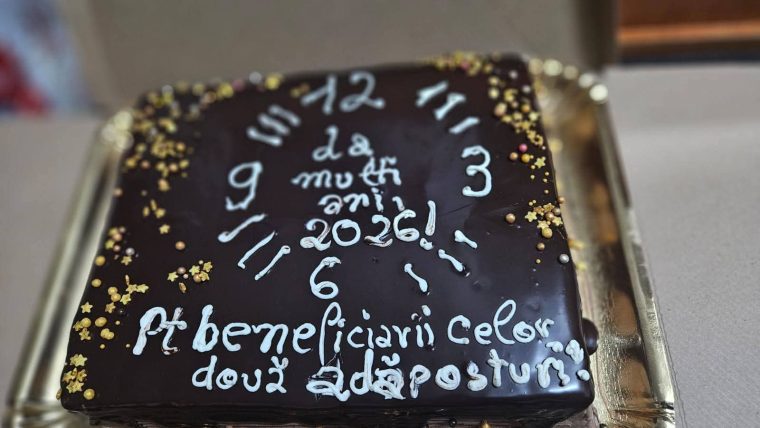 12
9
3
da
mulți
ani,
2026!
6
Pt beneficiarii celor
două adăposturi